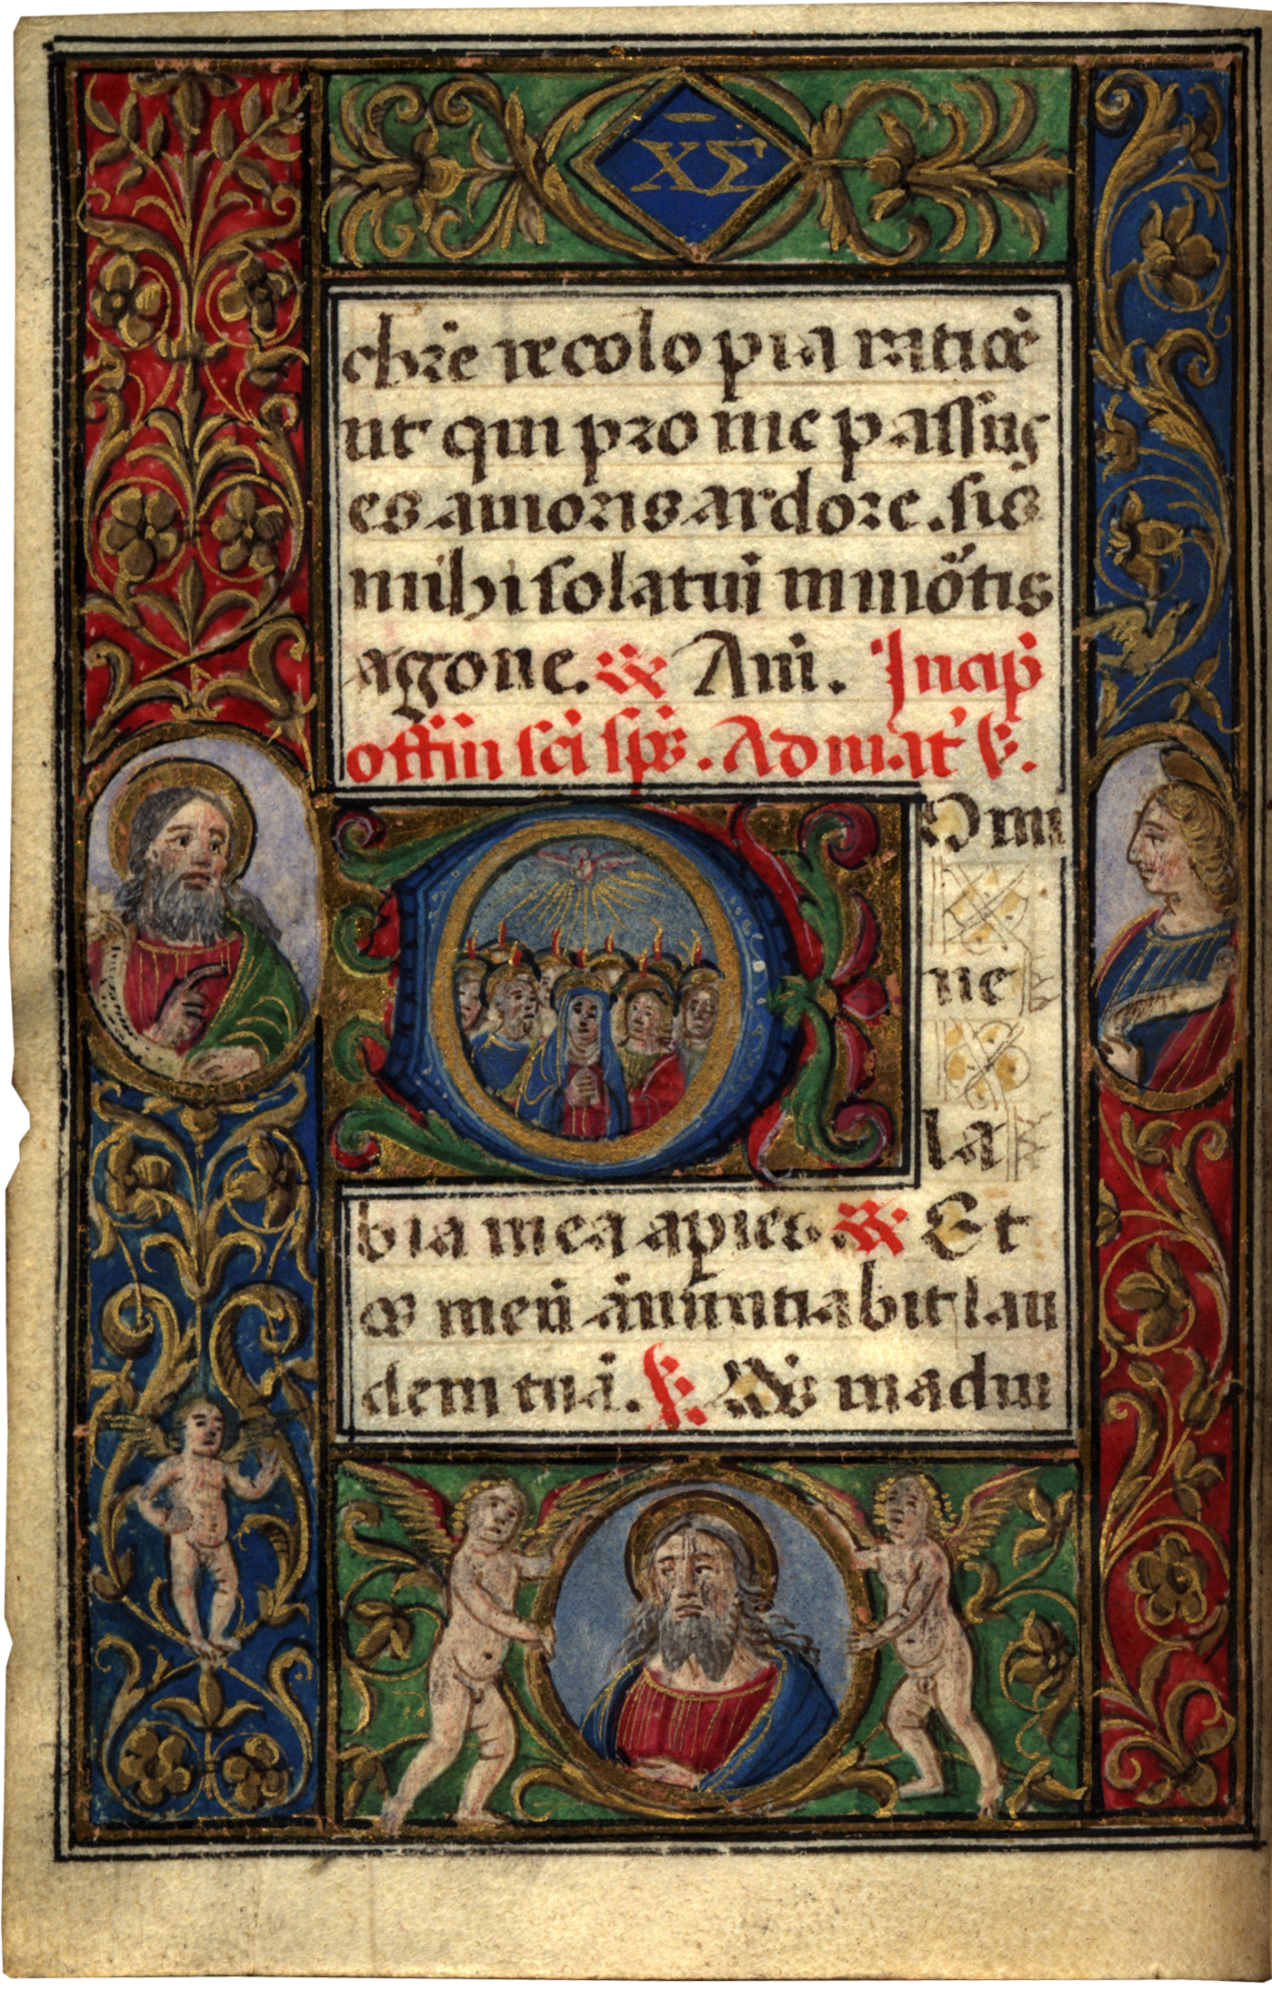 X̄Σ
chr̄e recolo pia ratiōe
ut qui pro me passus
es amoris ardore. sis
mihi solatiū in mōtis
agone. Am̄. Incip̄
offiū sc̄i sp̄s. Ad mat̄ v̄.
Domi
ne
la
bia mea apies. Et
os meū ānūntiabit lau
dem tuā. Ds̄ in adiu